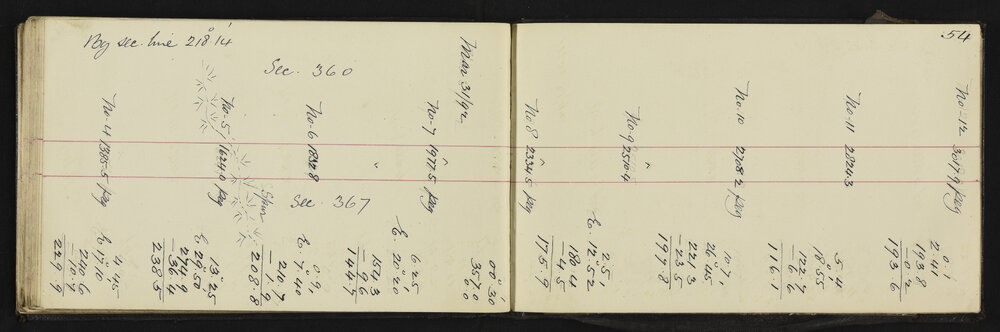 54
Bg sec. line 218° 14'
Sec. 360
Mar 31/92
No. 4 1385.5 peg
No. 5 1624.0 peg
No. 6 1832.8
No. 7 1977.5 peg
No 8 2334.5 peg
No. 9 2510.4
No. 10 2708.2 peg
No. 11 2824.3
No. 12 3017.9 peg
Sec. 367
4.45
E 17.10
240.6
-10.7
229.9
13.25
E 29.50
274.9
-36.4
238.5
0.9
E 7.40
210.7
-1.9
208.8
6.25
E. 20.20
154.3
-9.6
144.7
00° 30'
357.0
0.0
2.51
E. 12°.52
180.4
-4.5
175.9
10.71
26°.45
221.3
-23.5
197.8
5.4
18°.55
122.7
-6.6
116.1
0.1
2.41
193.8
-0.2
193.6